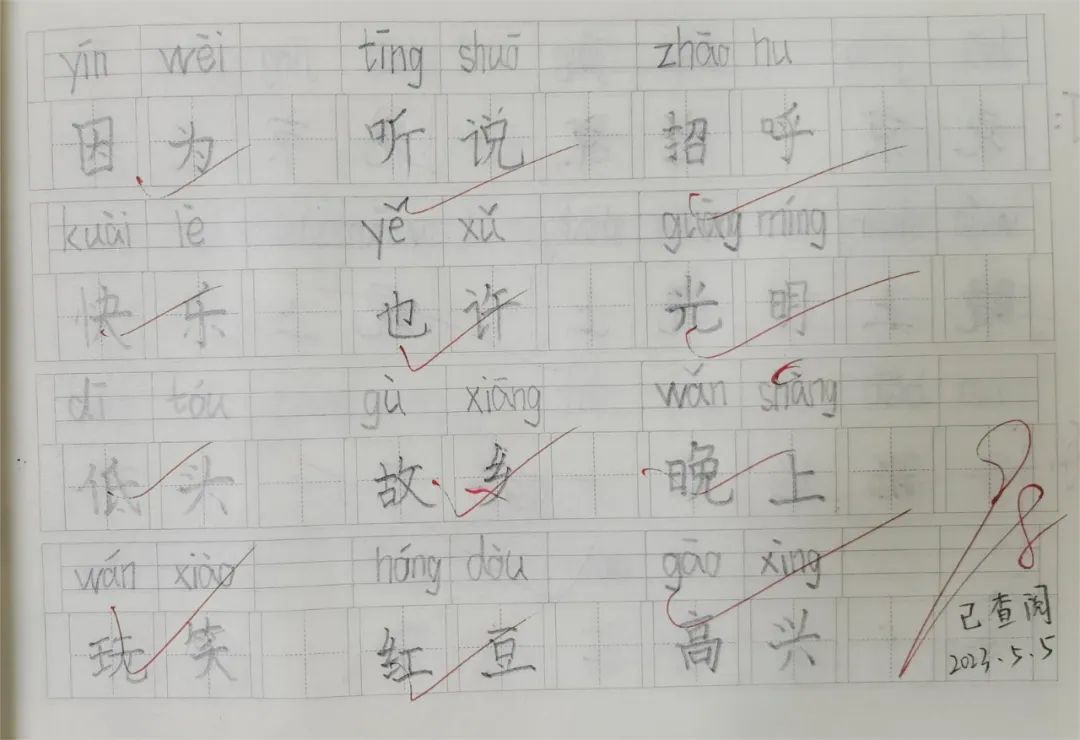 yīn wèi tīng shuō zhāo hu
因为 听说 招呼
kuài lè yě xǔ guāng míng
快乐 也许 光明
dī tóu gù xiāng wǎn shàng
低头 故乡 晚上
wán xiào hóng dòu gāo xìng
玩笑 红豆 高兴
98
已查阅
2023.5.5